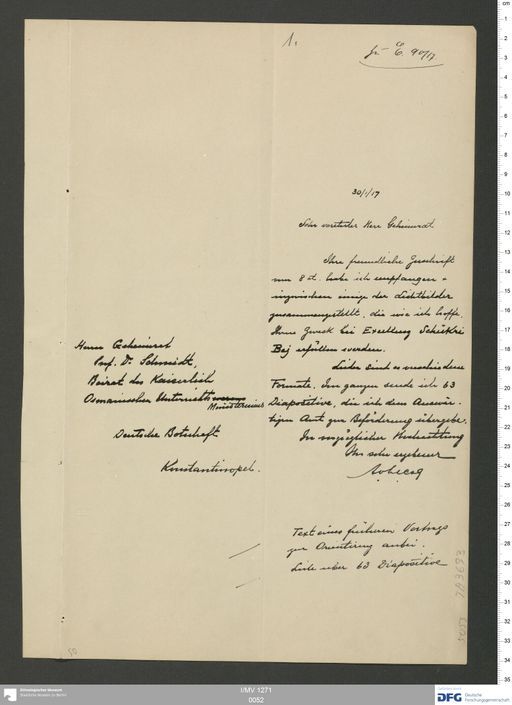 1.
zu E. 90/17.
30/1/17
Sehr verehrter Herr Geheimrat
Ihre freundliche Zuschrift
vom 8 d. habe ich empfangen +
inzwischen einige der Lichtbilder
zusammengestellt, die wie ich hoffe,
Ihrem Zweck bei Excellenz Schükri
Bej erfüllen werden.
Leider sind es verschiedene
Formate. Im ganzen sende ich 63
Diapositive, die ich dem Auswär-
tigen Amt zur Beförderung übergebe.
In vorzüglicher Hochachtung
Ihr sehr ergebener
Herrn Geheimrat
Prof. Dr. Schmidt,
Beirat des Kaiserlich
Osmanischen Unterrichts
Ministeriums
Deutsche Botschaft
Konstantinopel.
Text eines früheren Vortrags
zur Orientirung anbei.
Liste über 63 Diapositive
50
Ethnologisches Museum
Staatliche Museen zu Berlin
I/MV 1271
0052
DFG Deutsche
Forschungsgemeinschaft